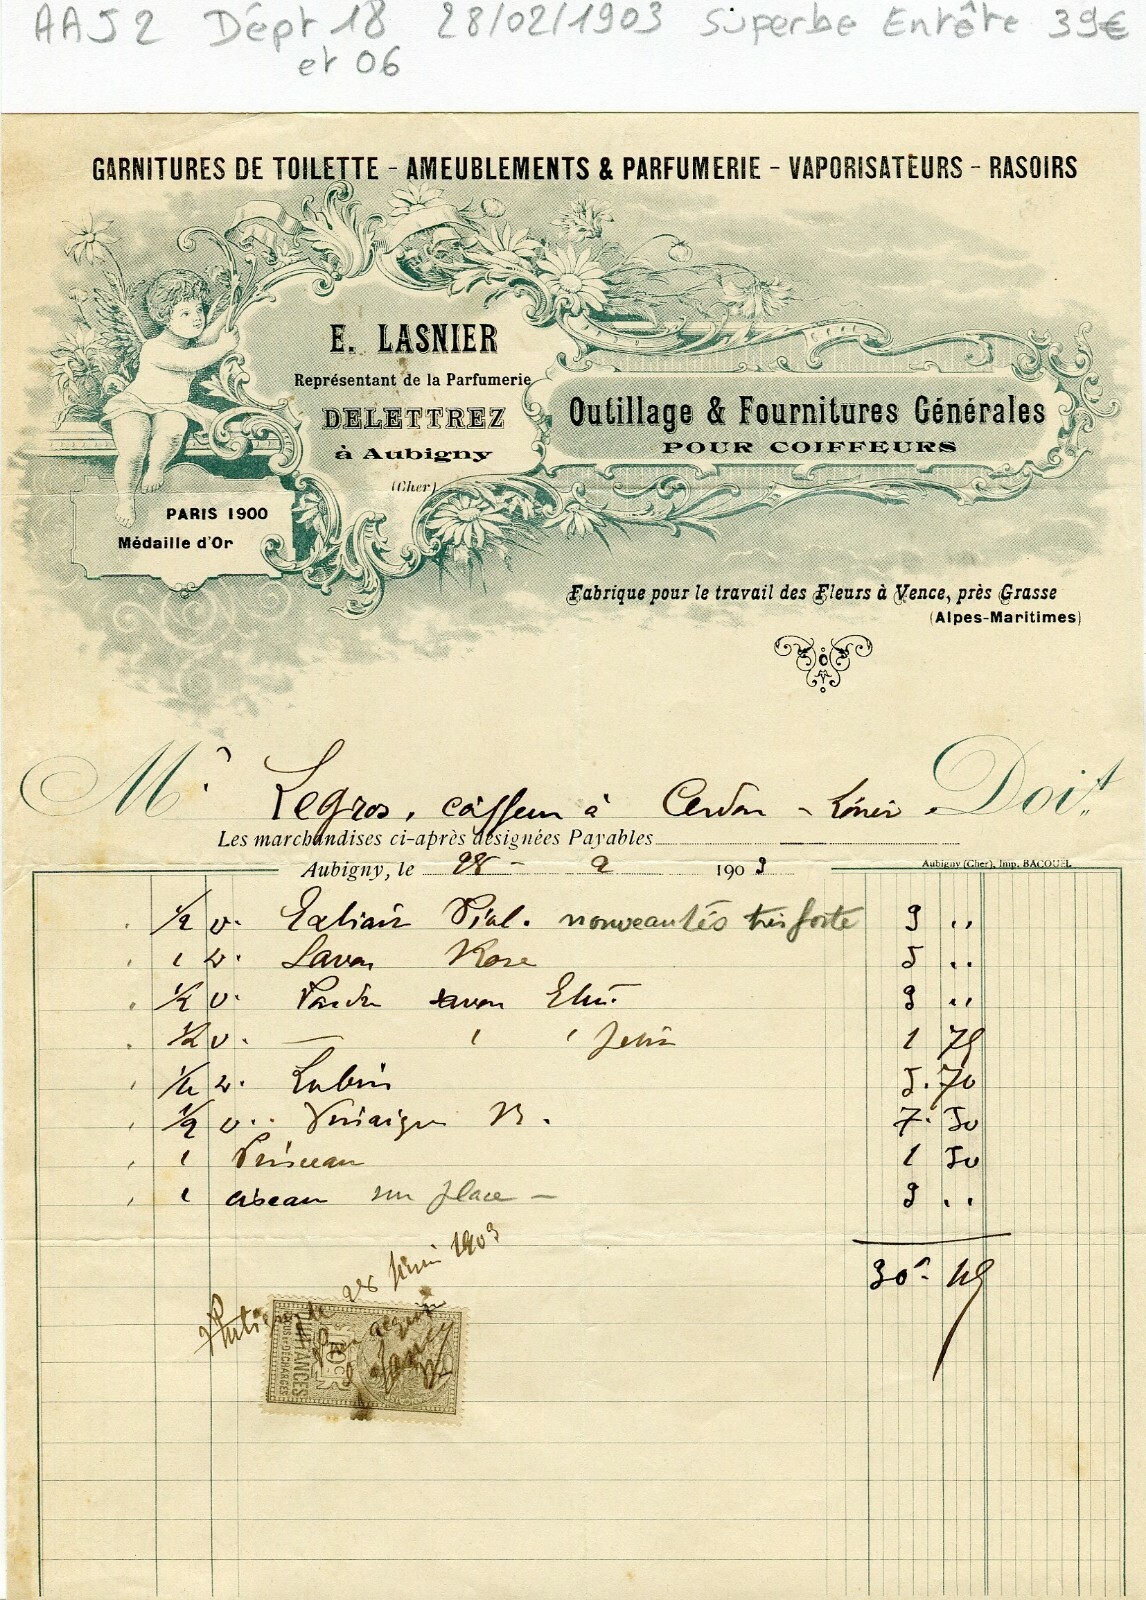 AAJ2 Dépt 18 28/02/1903 Superbe Entête 39€
et 06
GARNITURES DE TOILETTE - AMEUBLEMENTS & PARFUMERIE - VAPORISATEURS - RASOIRS
E. LASNIER
Représentant de la Parfumerie
DELETTREZ
à Aubigny
(Cher)
Outillage & Fournitures Générales
POUR COIFFEURS
PARIS 1900
Médaille d'Or
Fabrique pour le travail des Fleurs à Vence, près Grasse
(Alpes-Maritimes)
Mr Legros, coiffeur à Cerdon - Loiret. Doit
Les marchandises ci-après désignées Payables
Aubigny, le 28 - 2 1903
Aubigny (Cher), Imp. BACQUEL
1/2 d. nouveautés très forte 3 ..
1 d. Savon Rose 5 ..
1/2 d. savon 3 ..
1/2 d. — 1 75
1/2 d. Lubin 5.70
1/2 d.. Vinaigre B. 7.50
1 Pinceau 1 50
1 ciseau sur place - 3 ..
30f. 45
Aubigny le 28 février 1903
Pour acquit
QUITTANCES
REÇUS ET DÉCHARGES
10c